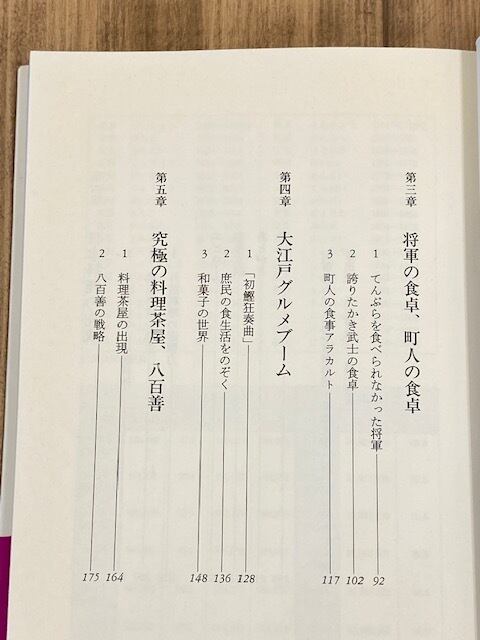 第三章 将軍の食卓、町人の食卓
1 てんぷらを食べられなかった将軍 92
2 誇りたかき武士の食卓 102
3 町人の食事アラカルト 117
第四章 大江戸グルメブーム
1 「初鰹狂奏曲」 128
2 庶民の食生活をのぞく 136
3 和菓子の世界 148
第五章 究極の料理茶屋、八百善
1 料理茶屋の出現 164
2 八百善の戦略 175